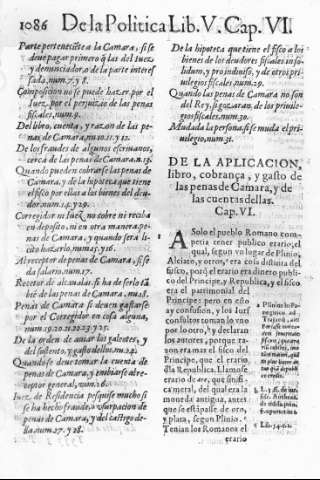 1086 De la Politica Lib. V. Cap. VI.
Parte perteneciente a la Camara, si se
deve pagar primero q̃ las del Iuez
y denunciador, o de la parte interes
sada, num. 7. y 8.
Composicion no se puede hazer por el
Iuez, por el perjuizio de las penas
fiscales, num. 9.
Del libro, cuenta, y razon de las pe-
nas de Camara, num. 10. 11. y 12.
De los fraudes de algunos escrivanos,
cerca de las penas de Camara, n. 13.
Quando pueden cobrarse las penas de
Camara, y de la hypoteca que tiene
el fisco por ellas a los bienes del deu-
dor, num. 14. y 29.
Corregidor ni Iuez no cobre ni reciba
en deposito, ni en otra manera pe-
nas de Camara, y quando será li-
cito hazerlo, num. 15. y 16.
Al receptor de penas de Camara, si se
da salario, num. 17.
Retor de alcavalas, si ha de serlo tã
bié de las penas de Camara, nu. 18.
Penas de Camara si deven gastarse
por el Corregidor en cosa alguna,
num. 19. 20. 21. 22. 23. y 25.
De la orden de aviar los galeotes, y
del sustento, y gasto dellos, nu. 24.
Quando se deve tomar la cuenta de
penas de Camara, y embiarse al re-
ceptor general, num. 26.
Iuez de Residencia pesquise mucho si
se ha hecho fraude, o usurpacion de
penas de Camara, y del castigo de-
lla, num. 27. y 28.
De la hipoteca que tiene el fisco a los
bienes de los deudores fiscales in so-
lidum, y pro indiviso, y de otros pri-
vilegios fiscales, num. 29.
Quando las penas de Camara no son
del Rey, si gozaran de los privile-
gios fiscales, num. 30.
Mudada la persona, si se muda el pri-
vilegio, num. 31.
DE LA APLICACION,
libro, cobrança, y gasto de
las penas de Camara, y de
las cuentas dellas.
Cap. VI.
A Solo el pueblo Romano com
petia tener publico erario, el
qual, segun vulgar de Plinio,
Alciato, y otros, era cosa distinta del
fisco, porq̃ el erario era dinero publico
del Principe, y Republica, y el fisco
era el patrimonial del
Principe: pero en esto
ay confusion, y los Iuris
consultos toman lo vno
por lo otro, y declaran
los autores, porque ra-
zon era mas el fisco del
Principe, que el erario
de la Republica. Llamose
erario de ære, que signifi-
ca metal, del qual era la
moneda antigua, antes
que se estãpasse de oro,
y plata, segun Plinio.
Tenian los Romanos el
erario